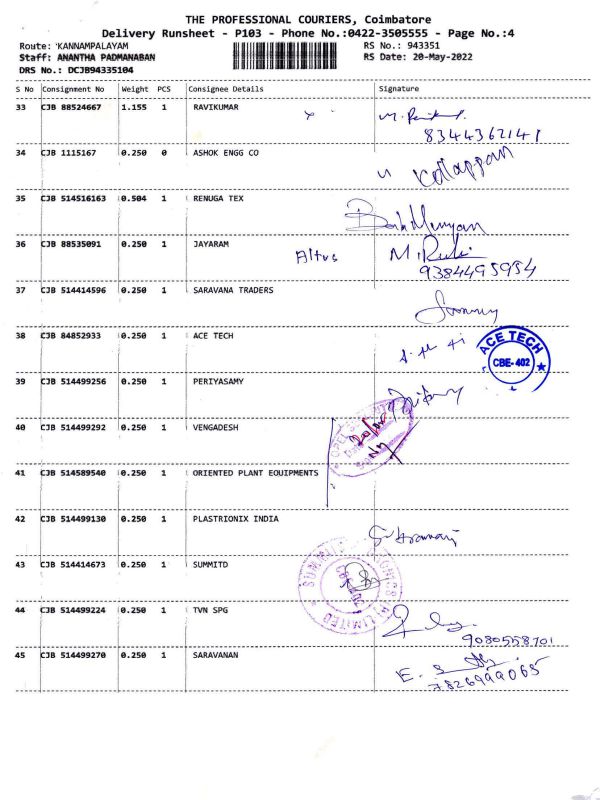 THE PROFESSIONAL COURIERS, Coimbatore
Delivery Runsheet - P103 - Phone No.:0422-3505555 - Page No.:4
Route: KANNAMPALAYAM RS No.: 943351
Staff: ANANTHA PADMANABAN RS Date: 20-May-2022
DRS No.: DCJB94335104
S No Consignment No Weight PCS Consignee Details Signature
33 CJB 88524667 1.155 1 RAVIKUMAR
8344362141
34 CJB 1115167 0.250 0 ASHOK ENGG CO
35 CJB 514516163 0.504 1 RENUGA TEX
36 CJB 88535091 0.250 1 JAYARAM Altus
9384495954
37 CJB 514414596 0.250 1 SARAVANA TRADERS
38 CJB 84852933 0.250 1 ACE TECH
ACE TECH
CBE-402
39 CJB 514499256 0.250 1 PERIYASAMY
40 CJB 514499292 0.250 1 VENGADESH
41 CJB 514589540 0.250 1 ORIENTED PLANT EQUIPMENTS
42 CJB 514499130 0.250 1 PLASTRIONIX INDIA
43 CJB 514414673 0.250 1 SUMMITD
44 CJB 514499224 0.250 1 TVN SPG
9080558701
45 CJB 514499270 0.250 1 SARAVANAN
7826999065